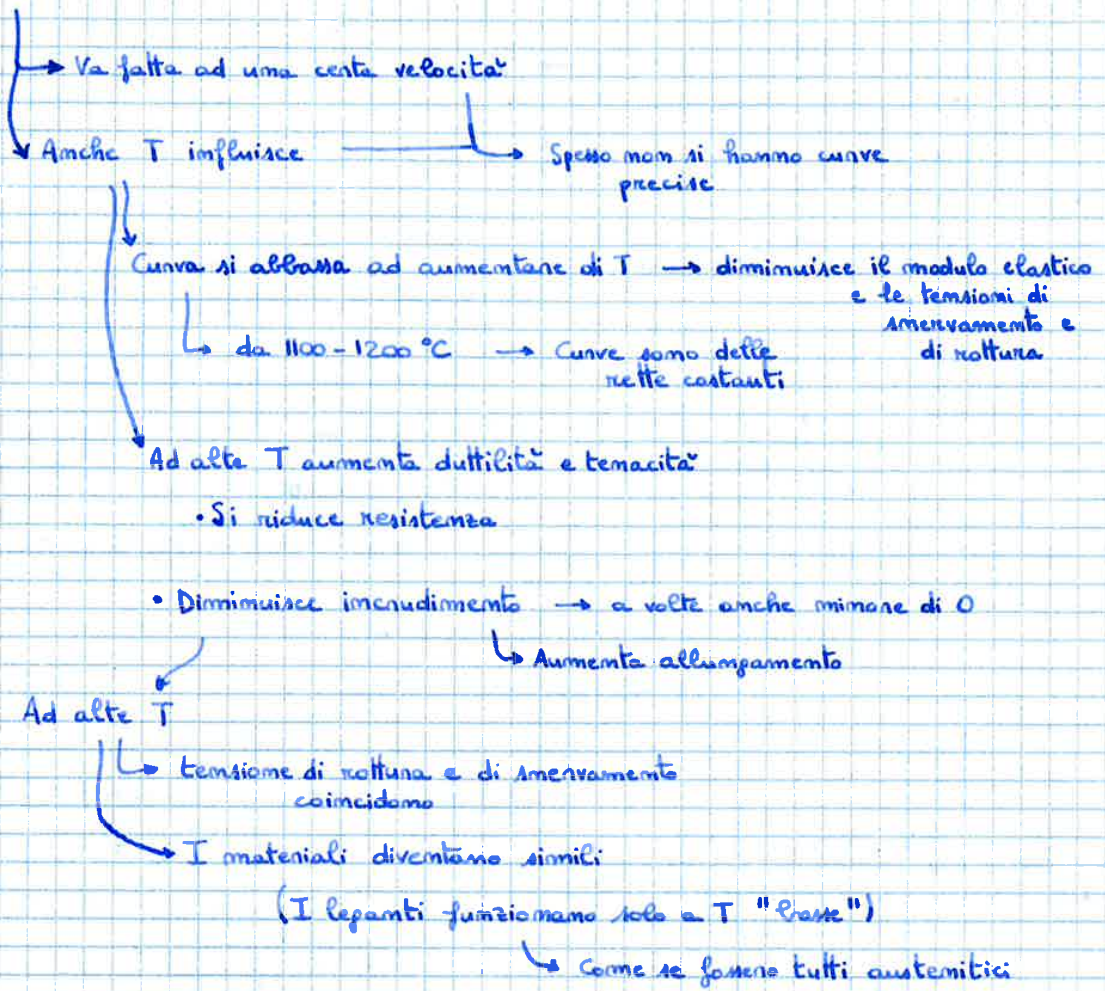 Va fatta ad una certa velocità
Anche T influisce
Spesso non si hanno curve
precise
Curva si abbassa ad aumentare di T → diminuisce il modulo elastico
e le tensioni di
snervamento e
di rottura
da 1100-1200 °C → Curve sono delle
rette costanti
Ad alte T aumenta duttilità e tenacità
• Si riduce resistenza
• Diminuisce incrudimento → a volte anche minore di 0
Aumenta allungamento
Ad alte T
tensione di rottura e di snervamento
coincidono
I materiali diventano simili
(I leganti funzionano solo a T "basse")
Come se fossero tutti austenitici